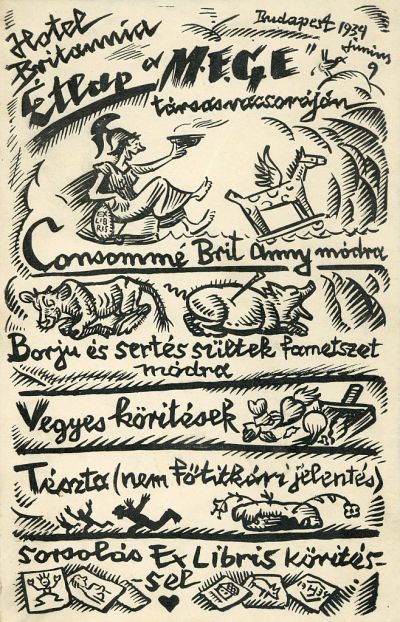 Hotel
Britannia
Budapest 1934
Junius
9
Étlap a "M.E.G.E."
társasvacsoráján
EX
LIB
RIS
Consommé Brit Anny módra
Borju és sertés sültek fametszet
módra
Vegyes köritések
Tészta (nem főtitkári jelentés)
Sorsolás Ex Libris körités-
sel